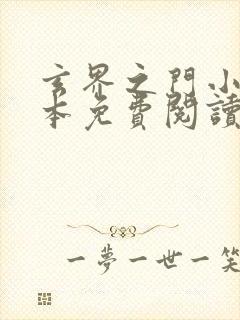 玄界之門小
本免費閱讀
一夢一世一笑